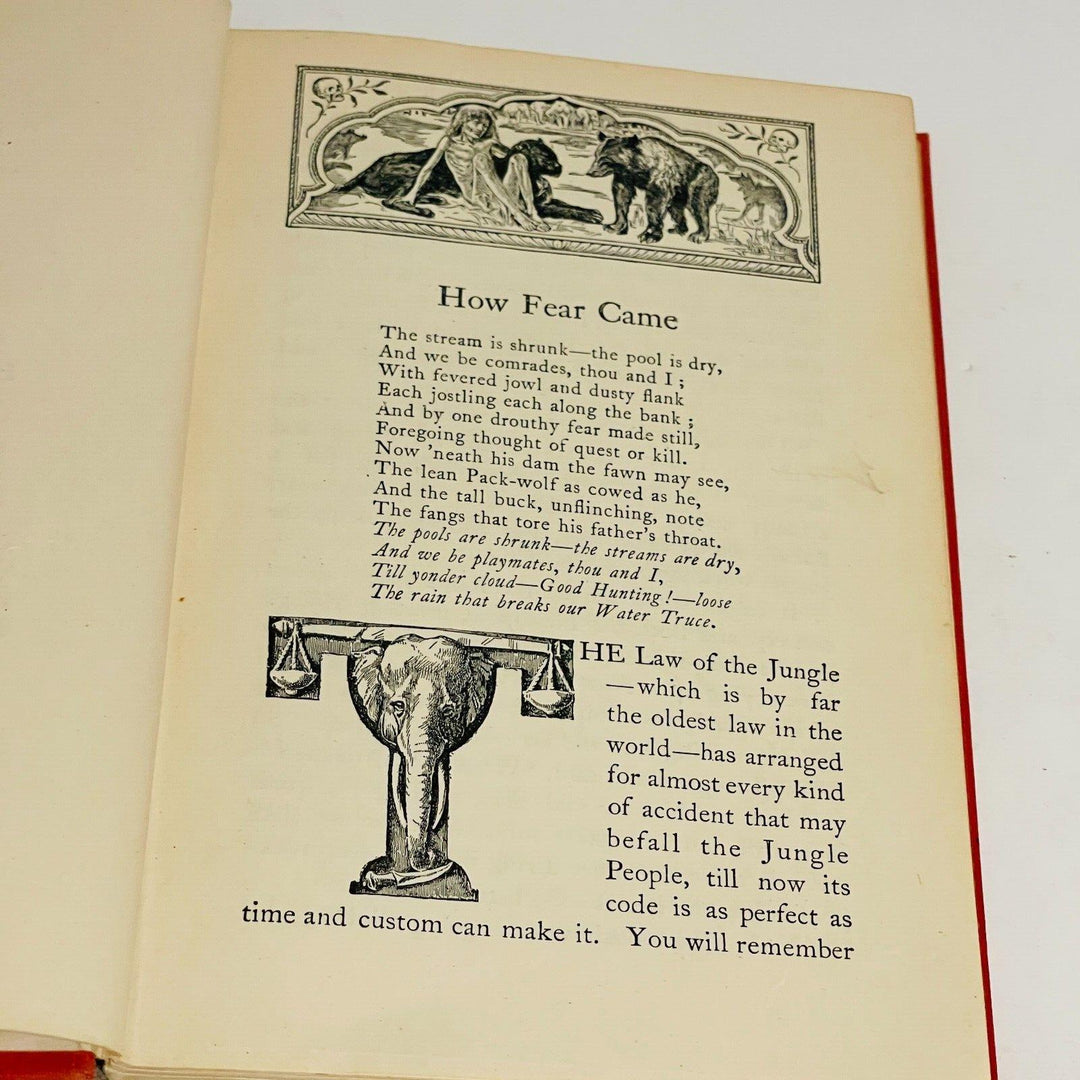 How Fear Came
The stream is shrunk—the pool is dry,
And we be comrades, thou and I ;
With fevered jowl and dusty flank
Each jostling each along the bank ;
And by one drouthy fear made still,
Foregoing thought of quest or kill.
Now 'neath his dam the fawn may see,
The lean Pack-wolf as cowed as he,
And the tall buck, unflinching, note
The fangs that tore his father's throat.
The pools are shrunk—the streams are dry,
And we be playmates, thou and I,
Till yonder cloud—Good Hunting!—loose
The rain that breaks our Water Truce.
THE Law of the Jungle
—which is by far
the oldest law in the
world—has arranged
for almost every kind
of accident that may
befall the Jungle
People, till now its
code is as perfect as
time and custom can make it. You will remember